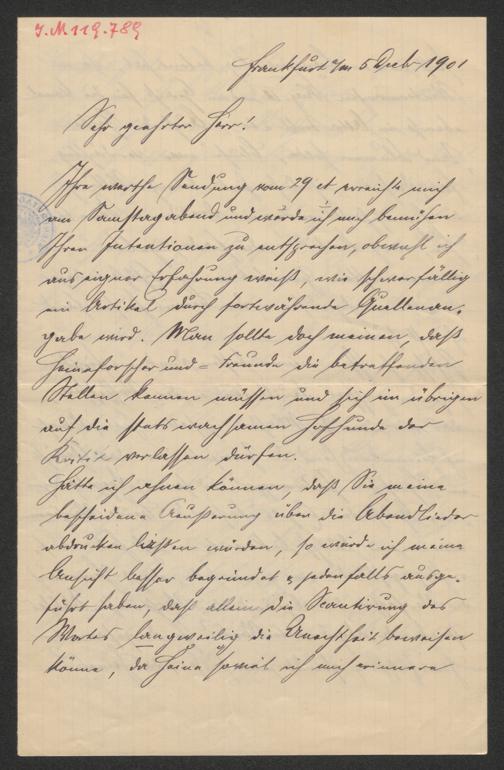 J. N 119.789
Frankfurt a/m 5 Decbr 1901
Sehr geehrter Herr!
Ihre werthe Sendung vom 29 ct erreichte mich
am Samstagabend und werde ich mich bemühen
Ihren Intentionen zu entsprechen, obwohl ich
aus eigner Erfahrung weiß, wie schwerfällig
ein Artikel durch fortwährende Quellenan-
gabe wird. Man sollte doch meinen, daß
Heineforscher und = Freunde die betreffenden
Stellen kennen müssen und sich im übrigen
auf die stets wachsamen Hofhunde der
Kritik verlassen dürfen.
Hätte ich ahnen können, daß Sie meine
bescheidene Aeußerung über die Abendlieder
abdrucken lassen würden, so würde ich meine
Ansicht besser begründet & jedenfalls ausge-
führt haben, daß allein die Scantirung des
Wortes langweilig die Unechtheit beweisen
könne, da Heine soviel ich mich erinnere